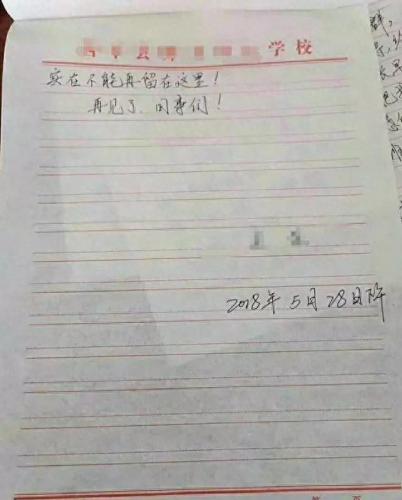 学校
实在不能再留在这里！
再见了，同事们！
2018年 5月 28日
第 页